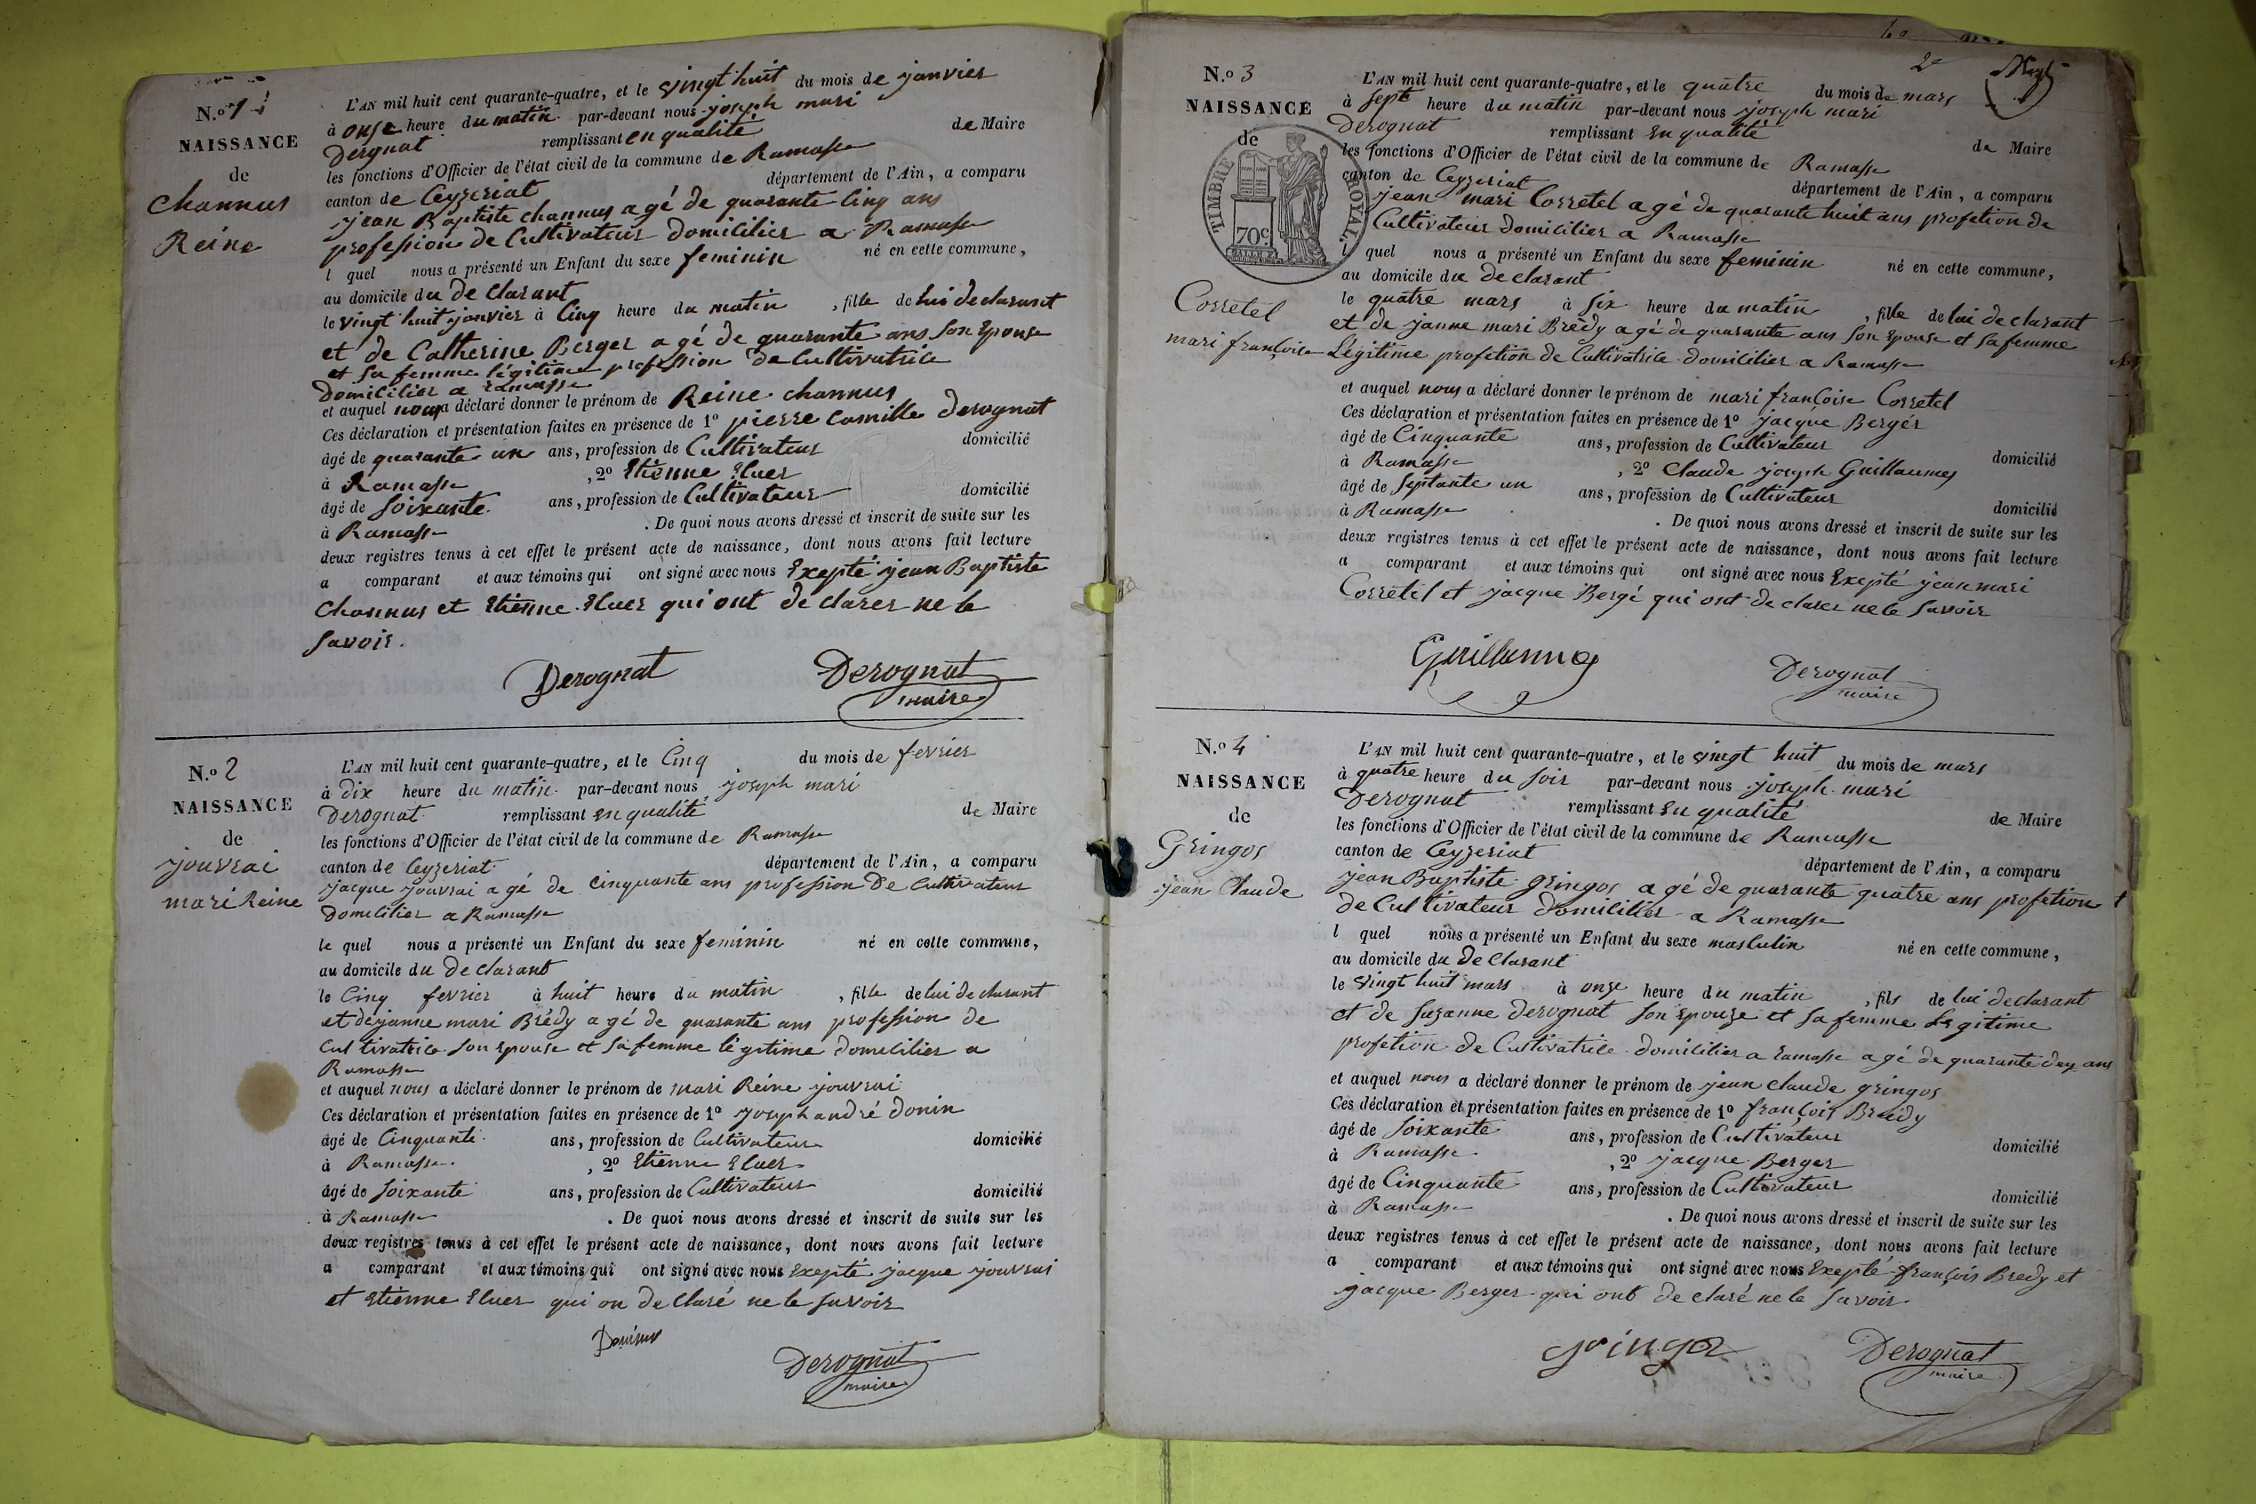 N.º 1
NAISSANCE
de
Channus
Reine
L'AN mil huit cent quarante-quatre, et le vingt huit du mois de janvier
à onse heure du matin par-devant nous joseph mari
Derognat remplissant en qualité de Maire
les fonctions d'Officier de l'état civil de la commune de Ramasse
canton de Ceyzeriat département de l'Ain, a comparu
jean Baptiste Channus agé de quarante cinq ans
profession de Cultivateur domicilier a Ramasse
l quel nous a présenté un Enfant du sexe feminin né en cette commune,
au domicile du declarant
le vingt huit janvier à cinq heure du matin, fille de lui declarant
et de Catherine Berger agé de quarante ans son Epouse
et sa femme légitime profession de Cultivatrice
domicilier a ramasse
et auquel nous a déclaré donner le prénom de Reine channus
Ces déclaration et présentation faites en présence de 1º pierre Camille derognat
âgé de quarante un ans, profession de Cultivateur domicilié
à Ramasse, 2º Etienne Eluer
âgé de soixante ans, profession de Cultivateur domicilié
à Ramasse. De quoi nous avons dressé et inscrit de suite sur les
deux registres tenus à cet effet le présent acte de naissance, dont nous avons fait lecture
a comparant et aux témoins qui ont signé avec nous Exepté jean Baptiste
Channus et Etienne Eluer qui ont declarer ne le
savoir.
Derognat Derognat
maire
N.º 2
NAISSANCE
de
jouvrai
mari Reine
L'AN mil huit cent quarante-quatre, et le cinq du mois de fevrier
à dix heure du matin par-devant nous joseph mari
Derognat remplissant en qualité de Maire
les fonctions d'Officier de l'état civil de la commune de Ramasse
canton de Ceyzeriat département de l'Ain, a comparu
jacque jouvrai agé de cinquante ans profession De cultivateur
Domicilier a Ramasse
le quel nous a présenté un Enfant du sexe feminin né en cette commune,
au domicile du declarant
le cinq fevrier à huit heure du matin, fille de lui declarant
et de janne mari Brédy agé de quarante ans profession de
Cultivatrice son Epouse et sa femme légitime domicilier a
Ramasse
et auquel nous a déclaré donner le prénom de mari Reine jouvrai
Ces déclaration et présentation faites en présence de 1º joseph andré donin
âgé de Cinquante ans, profession de Cultivateur domicilié
à Ramasse, 2º Etienne Eluer
âgé de soixante ans, profession de Cultivateur domicilié
à Ramasse. De quoi nous avons dressé et inscrit de suite sur les
deux registres tenus à cet effet le présent acte de naissance, dont nous avons fait lecture
a comparant et aux témoins qui ont signé avec nous Exepté jacque jouvrai
et Etienne Eluer qui on declaré ne le savoir
Derognat
maire
2e
N.º 3
NAISSANCE
de
TIMBRE ROYAL.
70c
Corretel
mari françoise
L'AN mil huit cent quarante-quatre, et le quatre du mois de mars
à sept heure du matin par-devant nous joseph mari
Derognat remplissant en qualité de Maire
les fonctions d'Officier de l'état civil de la commune de Ramasse
canton de Ceyzeriat département de l'Ain, a comparu
jean mari Corretel agé de quarante huit ans profetion de
Cultivateur domicilier a Ramasse
l quel nous a présenté un Enfant du sexe feminin né en cette commune,
au domicile du declarant
le quatre mars à six heure du matin, fille de lui declarant
et de janne mari Bredy agé de quarante ans son Epouse et sa femme
Légitime profetion de Cultivatrice domicilier a Ramasse
et auquel nous a déclaré donner le prénom de mari françoise Corretel
Ces déclaration et présentation faites en présence de 1º jacque Berger
âgé de Cinquante ans, profession de Cultivateur domicilié
à Ramasse, 2º Claude joseph Guillaumes
âgé de septante un ans, profession de Cultivateur domicilié
à Ramasse. De quoi nous avons dressé et inscrit de suite sur les
deux registres tenus à cet effet le présent acte de naissance, dont nous avons fait lecture
a comparant et aux témoins qui ont signé avec nous Exepté jean mari
Corretel et jacque Bergé qui ont declarer ne le savoir
Guillaumes Derognat
maire
N.º 4
NAISSANCE
de
Gringos
jean Claude
L'AN mil huit cent quarante-quatre, et le vingt huit du mois de mars
à quatre heure du soir par-devant nous joseph mari
Derognat remplissant en qualité de Maire
les fonctions d'Officier de l'état civil de la commune de Ramasse
canton de Ceyzeriat département de l'Ain, a comparu
jean Baptiste gringos agé de quarante quatre ans profetion
de Cultivateur domicilier a Ramasse
l quel nous a présenté un Enfant du sexe masculin né en cette commune,
au domicile du declarant
le vingt huit mars à onze heure du matin, fils de lui declarant
et de suzanne derognat son Epouze et sa femme Legitime
profetion de Cultivatrice domicilier a ramasse agé de quarante deux ans
et auquel nous a déclaré donner le prénom de jean claude gringos
Ces déclaration et présentation faites en présence de 1º françois Bredy
âgé de soixante ans, profession de Cultivateur domicilié
à Ramasse, 2º jacque Berger
âgé de Cinquante ans, profession de Cultivateur domicilié
à Ramasse. De quoi nous avons dressé et inscrit de suite sur les
deux registres tenus à cet effet le présent acte de naissance, dont nous avons fait lecture
a comparant et aux témoins qui ont signé avec nous Exepté françois Bredy et
jacque Berger qui ont declaré ne le savoir
gringos Derognat
maire